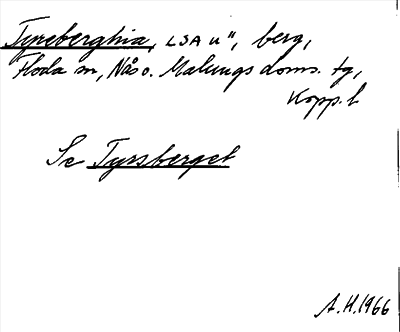 Tyrsberghia, LSA u", berg,
Floda sn, Nås o. Malungs doms. tg,
Kopp. l
Se Tyrsberget
A.H. 1966